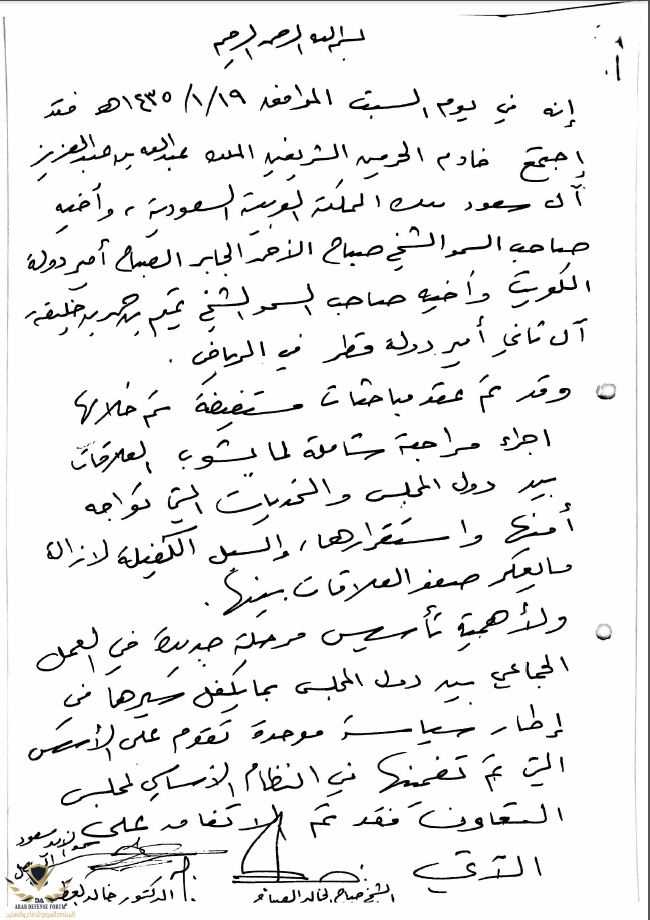 بسم الله الرحمن الرحيم
إنه في يوم السبت الموافق ١٩/١/١٤٣٥هـ فقد
إجتمع خادم الحرمين الشريفين الملك عبدالله بن عبدالعزيز
آل سعود ملك المملكة العربية السعودية، وأخيه
صاحب السمو الشيخ صباح الأحمد الجابر الصباح أمير دولة
الكويت وأخيه صاحب السمو الشيخ تميم بن حمد بن خليفة
آل ثاني أمير دولة قطر في الرياض.
وقد تم عقد مباحثات مستفيضة تم خلالها
اجراء مراجعة شاملة لما يشوب العلاقات
بين دول المجلس والتحديات التي تواجه
أمنها واستقرارها، والسبل الكفيلة لازالة
مايعكر صفو العلاقات بينها.
ولأهمية تأسيس مرحلة جديدة في العمل
الجماعي بين دول المجلس بما يكفل سيرها في
إطار سياسة موحدة تقوم على الأسس
التي تم تضمنها في النظام الأساسي لمجلس
التعاون فقد تم الاتفاق على
الآتي
سعود
الشيخ صباح الخالد الصباح
الدكتور خالد العطية
DA
ARAB DEFENSE FORUM
المنتدى العربي للدفاع والتسليح